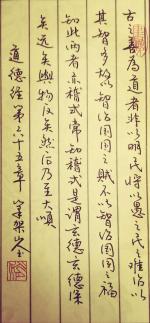 古之善為道者非以明民將以愚之民之難治以
其智多故以智治國國之賊不以智治國國之福
知此兩者亦稽式常知稽式是謂玄德玄德深
矣遠矣與物反矣然後乃至大順
道德經第六十五章